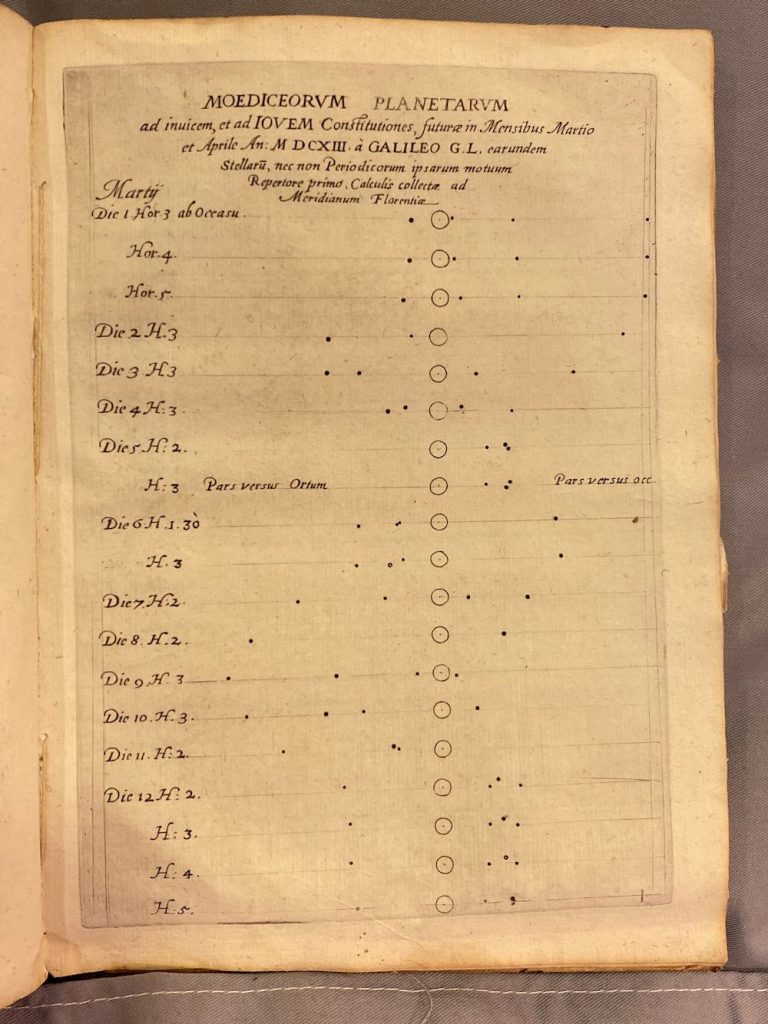 MOEDICEORVM PLANETARVM
ad inuicem, et ad IOVEM Constitutiones, futuræ in Mensibus Martio
et Aprile An: M DCXIII. à GALILEO G.L. earundem
Stellarū, nec non Periodicorum ipsarum motuum
Repertore primo. Calculis collectæ ad
Meridianum Florentiæ
Martij
Die 1 Hor 3 ab Occasu.
Hor. 4.
Hor. 5.
Die 2 H. 3
Die 3 H 3
Die 4 H: 3.
Die 5 H: 2.
H: 3 Pars versus Ortum Pars versus occ.
Die 6 H. 1. 30
H. 3
Die 7. H. 2
Die 8. H. 2.
Die 9 H. 3
Die 10. H. 3.
Die 11. H: 2.
Die 12 H: 2.
H: 3.
H: 4
H: 5.